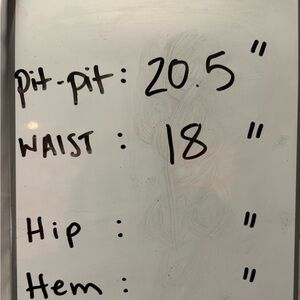 pit-pit: 20.5"
WAIST : 18"
Hip : "
Hem : "